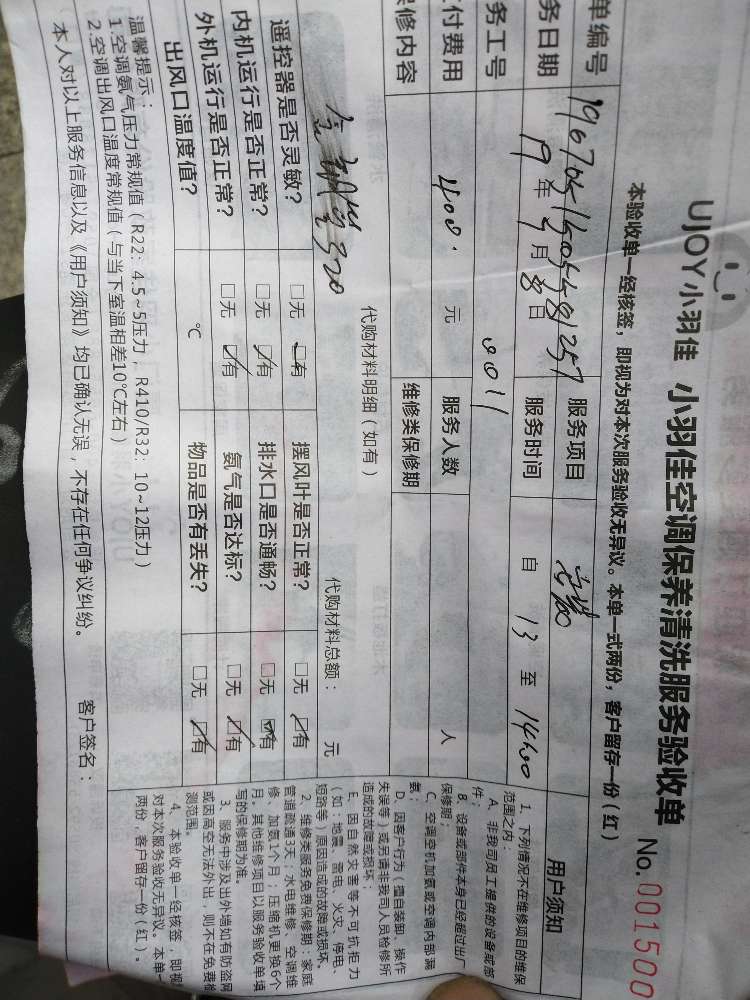 UJOY小羽佳 小羽佳空调保养清洗服务验收单
No.001500
本验收单一经核签，即视为对本次服务验收无异议。本单一式两份，客户留存一份（红）
单编号 服务项目
务日期 19年 月8日 服务时间 自 13 至 14:00
务工号 8011
付费用 400. 元 服务人数 人
修内容 维修类保修期
代购材料明细（如有） 代购材料总额： 元
遥控器是否灵敏？ □无 ☑有 摆风叶是否正常？ □无 ☑有
内机运行是否正常？ □无 ☑有 排水口是否通畅？ □无 ☑有
外机运行是否正常？ □无 ☑有 氨气是否达标？ □无 ☑有
出风口温度值？ ℃ 物品是否有丢失？ □无 ☑有
温馨提示：
1.空调氨气压力常规值（R22：4.5~5压力，R410/R32：10~12压力）
2.空调出风口温度常规值（与当下室温相差10℃左右）
本人对以上服务信息以及《用户须知》均已确认无误，不存在任何争议纠纷。 客户签名：
用户须知
1、下列情况不在维修项目的维保
范围之内：
A、非我司员工提供的设备或部
件；
B、设备或部件本身已经超过出厂
保修期；
C、空调单机加氨或空调内部漏
氨；
D、因客户行为（擅自装卸、操作
失误等）或另请非我司人员检修所
造成的故障或损坏；
E、因自然灾害等不可抗拒力
（如：地震、雷电、火灾、停电、
短路等）原因造成的故障或损坏。
2、维修类服务免费保修期：家庭
管道疏通3天；水电维修、空调维
修、加氨1个月；压缩机更换6个
月。其他维修项目以服务验收单填
写的保修期为准。
3、服务中涉及出外墙如有防盗网
或因高空无法外出，则不在免费检
测范围。
4、本验收单一经核签，即视
对本次服务验收无异议。本单一
两份，客户留存一份（红）。